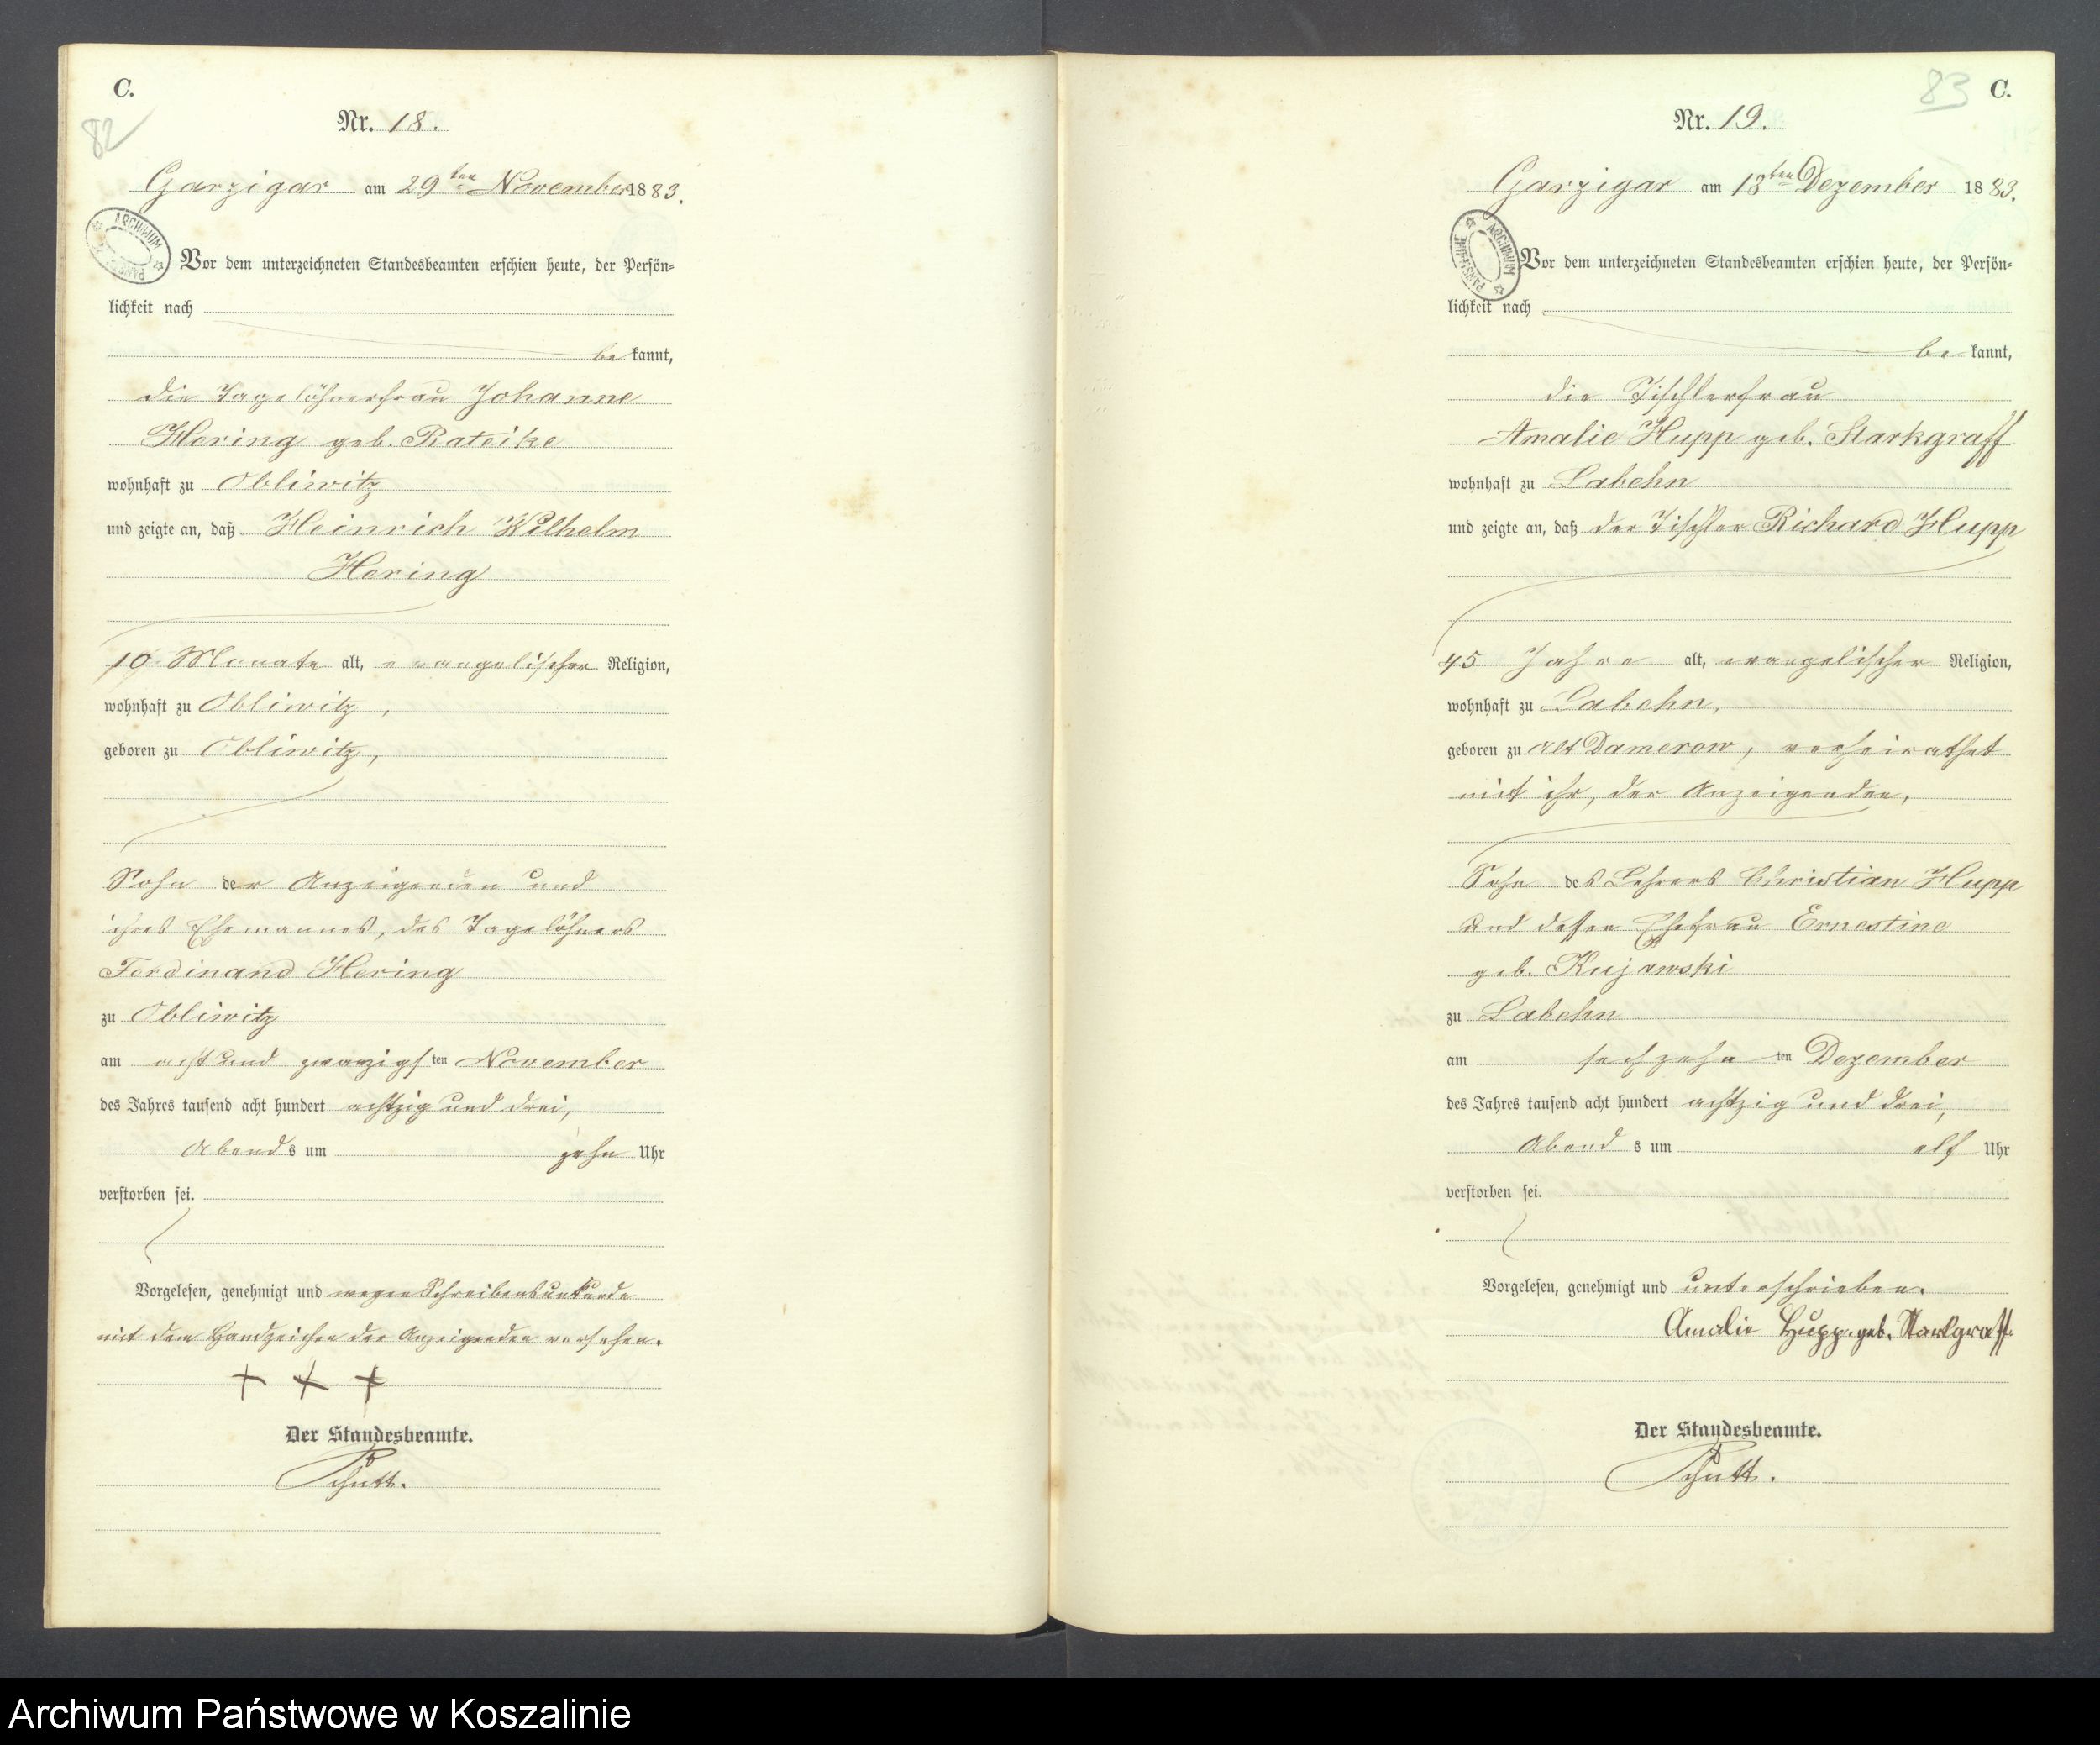 C.
82
Nr. 18.
Garzigar am 29ten November 1883.
ARCHIWUM
Vor dem unterzeichneten Standesbeamten erschien heute, der Persön=
lichkeit nach
be kannt,
die Tagelöhnerfrau Johanne
Hering geb. Rateike
wohnhaft zu Obliwitz
und zeigte an, daß Heinrich Wilhelm
Hering
10 Monate alt, evangelischer Religion,
wohnhaft zu Obliwitz,
geboren zu Obliwitz,
Sohn der Anzeigenden und
ihres Ehemannes, des Tagelöhners
Ferdinand Hering
zu Obliwitz
am acht und zwanzigsten November
des Jahres tausend acht hundert achtzig und drei,
Abends um zehn Uhr
verstorben sei.
Vorgelesen, genehmigt und wegen Schreibensunkunde
mit dem Handzeichen der Anzeigenden versehen.
+ + +
Der Standesbeamte.
Schutt.
83 C.
Nr. 19.
Garzigar am 18ten Dezember 1883.
ARCHIWUM PAŃSTWOWE
Vor dem unterzeichneten Standesbeamten erschien heute, der Persön=
lichkeit nach
be kannt,
die Tischlerfrau
Amalie Hupp geb. Starkgraff
wohnhaft zu Labehn
und zeigte an, daß der Tischler Richard Hupp
45 Jahre alt, evangelischer Religion,
wohnhaft zu Labehn,
geboren zu Alt Damerow, verheirathet
mit ihr, der Anzeigenden,
Sohn des Lehrers Christian Hupp
und dessen Ehefrau Ernestine
geb. Kujawski
zu Labehn
am sechzehnten Dezember
des Jahres tausend acht hundert achtzig und drei,
Abends um elf Uhr
verstorben sei.
Vorgelesen, genehmigt und unterschrieben.
Amalie Hupp geb. Starkgraff.
Der Standesbeamte.
Schutt.
Archiwum Państwowe w Koszalinie